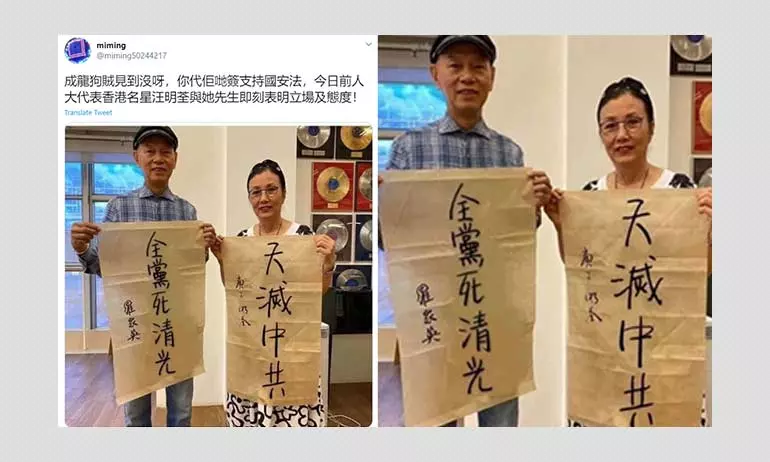 miming
@miming50244217
成龍狗賊見到沒呀，你代佢哋簽支持國安法，今日前人
大代表香港名星汪明荃與她先生即刻表明立場及態度！
Translate Tweet
全黨死清光
羅家英
天滅中共
全黨死清光
羅家英
天滅中共